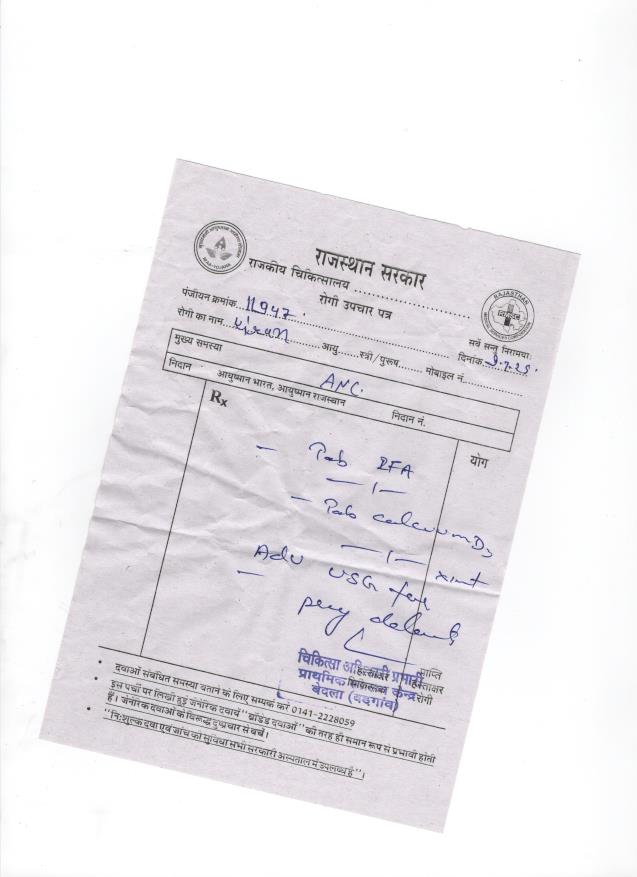 राजस्थान सरकार
राजकीय चिकित्सालय ........................
रोगी उपचार पत्र
RAJASTHAN
पंजीयन क्रमांक...11947...
सर्वे सन्तु निरामयाः
रोगी का नाम....Kiran.... आयु......स्त्री/पुरूष........ मोबाइल नं................ दिनांक..9.7.25.
मुख्य समस्या ANC.
निदान आयुष्मान भारत, आयुष्मान राजस्थान निदान नं.
Rx योग
– Tab IFA
— 1 —
– Tab calcium D3
— 1 — x1mt
Adv USG for
– preg
प्राप्ति
हस्ताक्षर
चिकित्सा अधिकारी प्रभारी
प्राथमिक केन्द्र
बेदला (बड़गांव)
रोगी
• दवाओं संबंधित समस्या बताने के लिए सम्पर्क करें 0141-2228059
• इस पर्ची पर लिखी हुई जेनेरिक दवायें "ब्रांडेड दवाओं" की तरह ही समान रूप से प्रभावी होती
हैं। जेनेरिक दवाओं के विरूद्ध दुष्प्रचार से बचें।
• "निःशुल्क दवा एवं जांच की सुविधा सभी सरकारी अस्पताल में उपलब्ध है"।